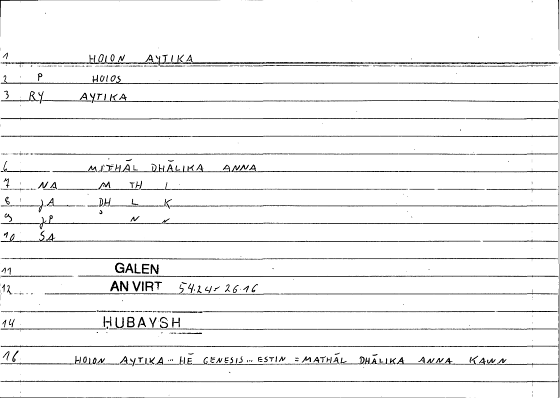 1 HOION AYTIKA
2 P HOIOS
3 RY AYTIKA
6 MITHĀL DHĀLIKA ANNA
7 NA M TH L
8 JA DH L K
9 JP ' N
10 SA
11 GALEN
12 AN VIRT 54.24 26.16
14 HUBAYSH
16 HOION AYTIKA HĒ GENESIS ESTIN = MATHĀL DHĀLIKA ANNA KAWN